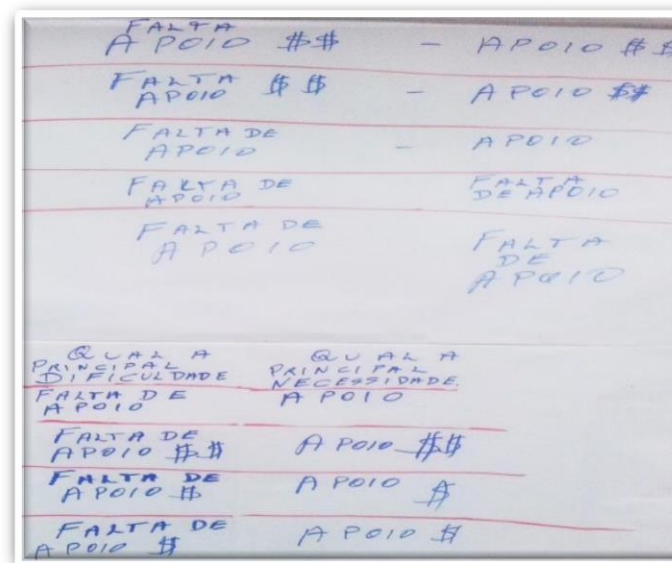 FALTA
APOIO $$ - APOIO $$
FALTA
APOIO $$ - APOIO $$
FALTA DE
APOIO - APOIO
FALTA DE
APOIO
FALTA
DE APOIO
FALTA DE
APOIO
FALTA
DE
APOIO
QUAL A
PRINCIPAL
DIFICULDADE
QUAL A
PRINCIPAL
NECESSIDADE.
FALTA DE
APOIO
APOIO
FALTA DE
APOIO $$
APOIO $$
FALTA DE
APOIO $
APOIO $
FALTA DE
APOIO $
APOIO $